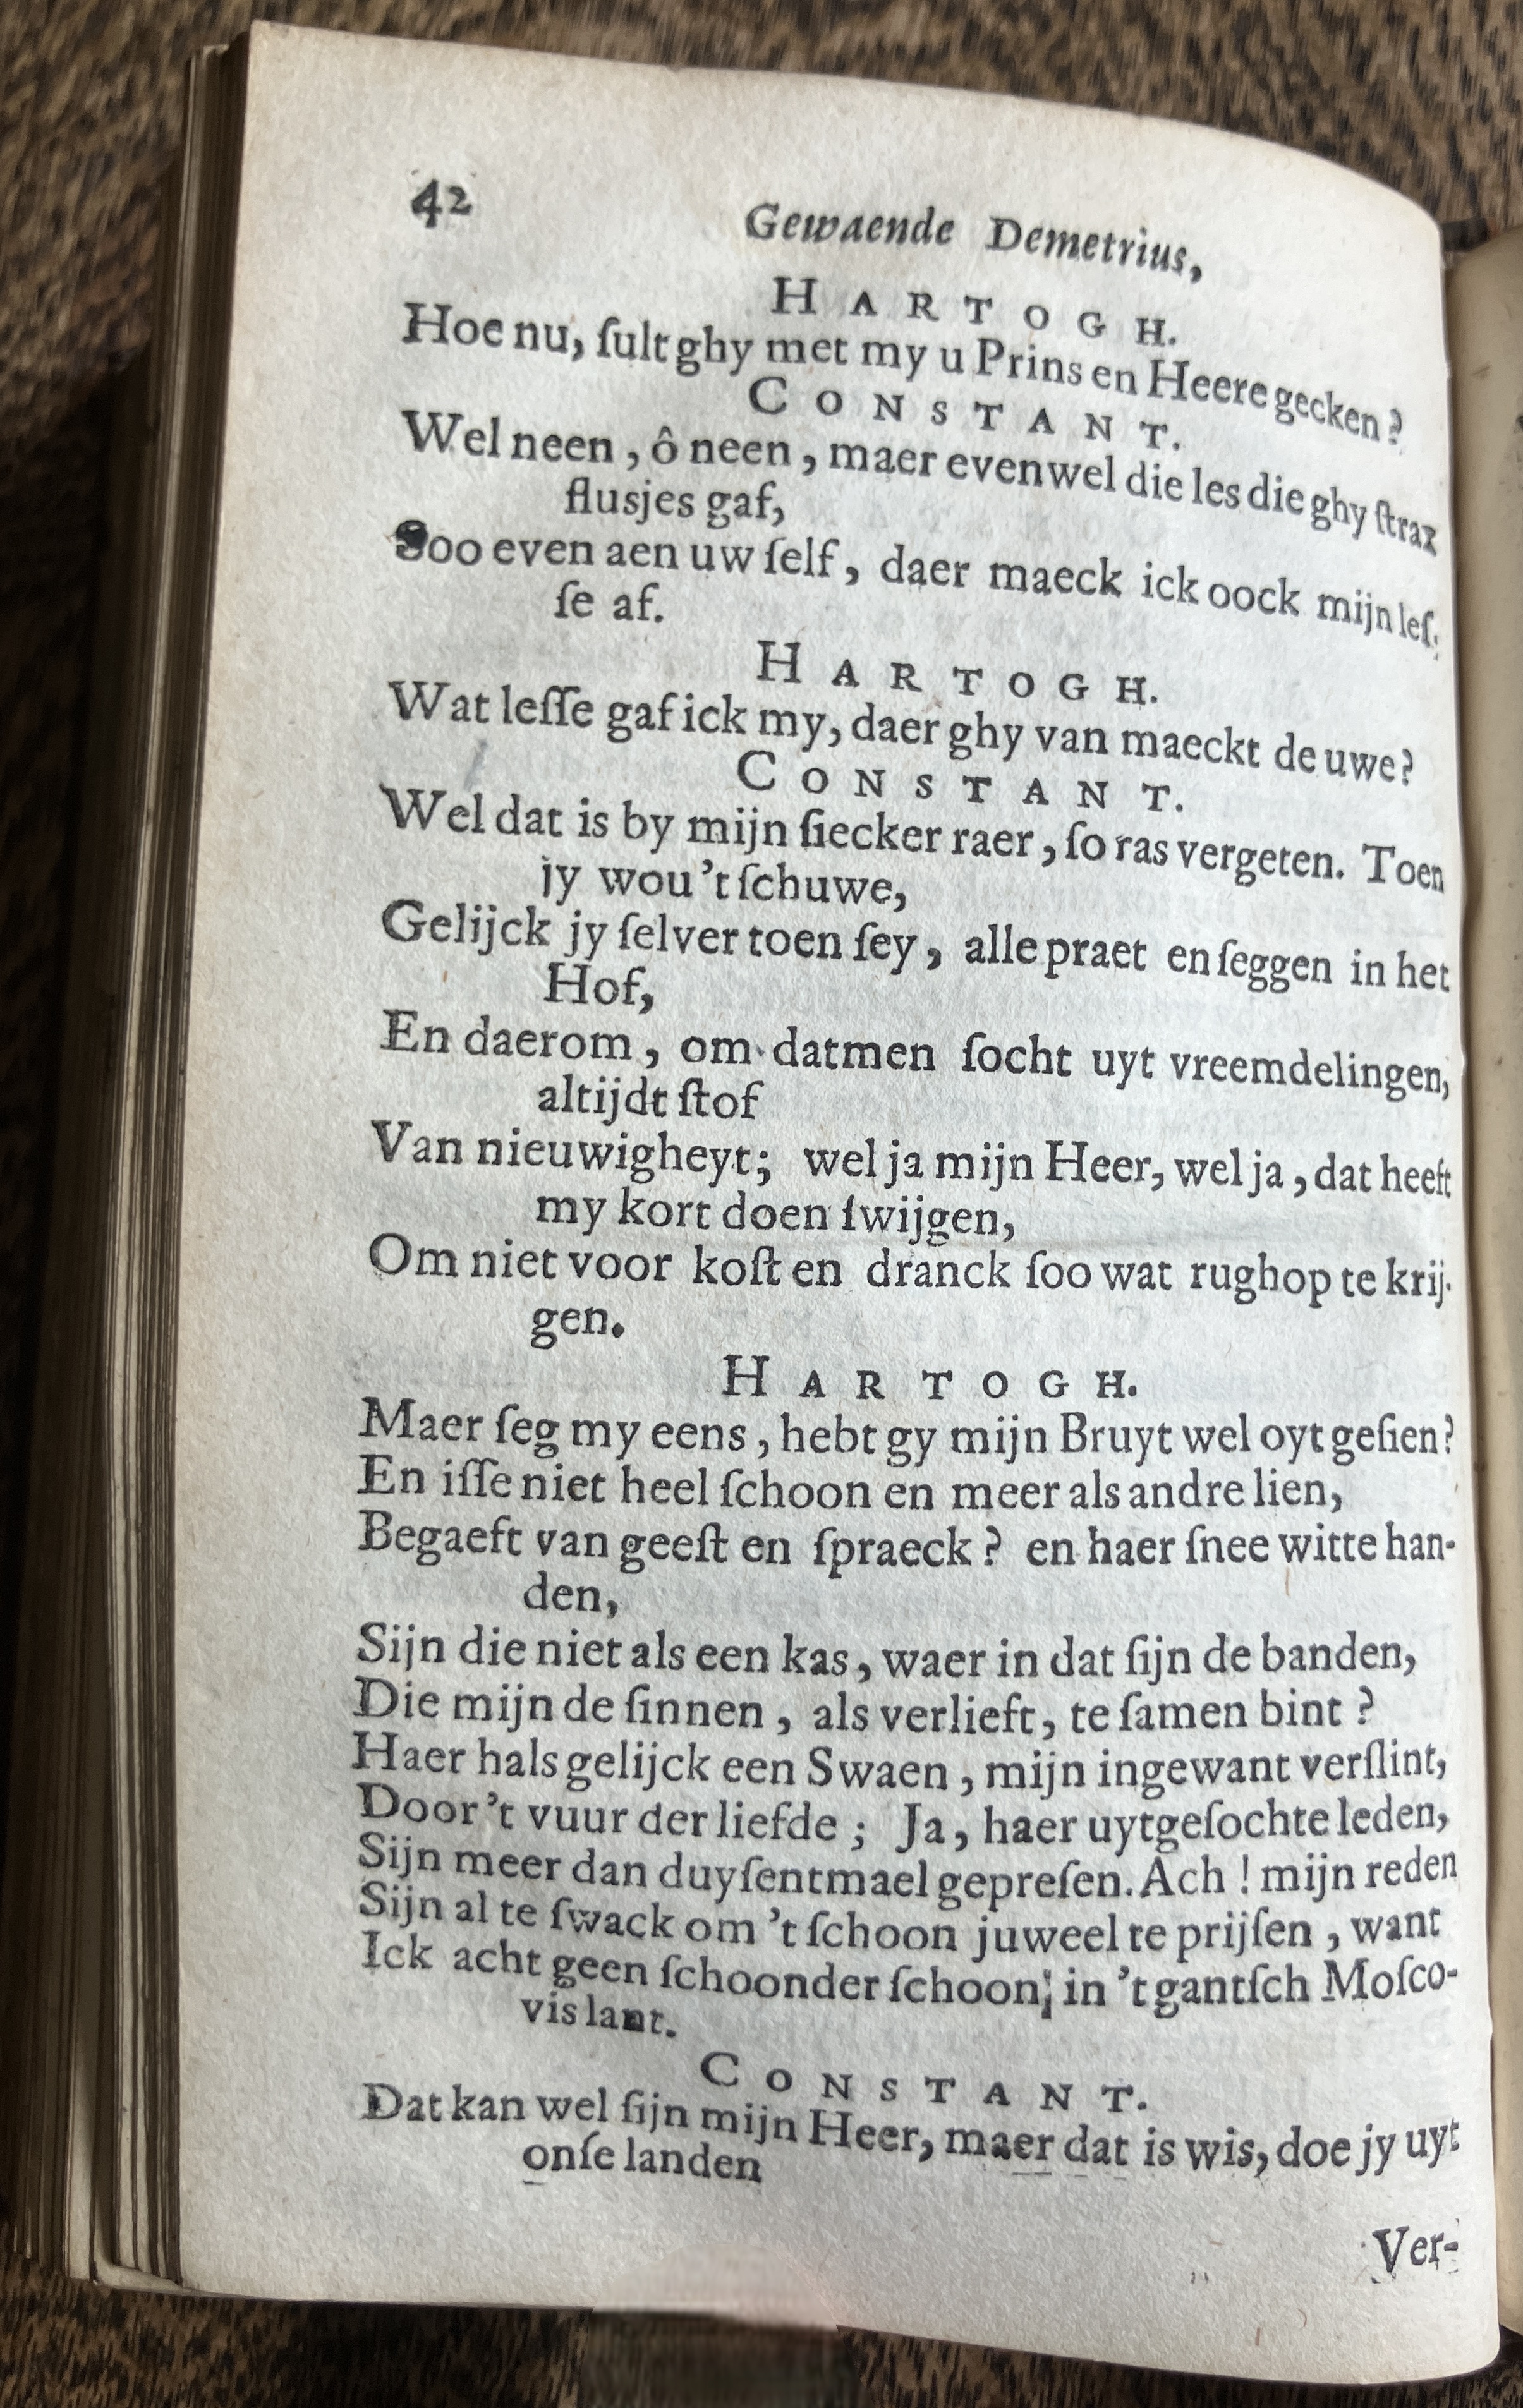 42
Gewaende Demetrius,
HARTOGH.
Hoe nu, ſult ghy met my u Prins en Heere gecken?
CONSTANT.
Wel neen, ô neen, maer evenwel die les die ghy ſtrax
fluſjes gaf,
Soo even aen uw ſelf, daer maeck ick oock mijn leſ-
ſe af.
HARTOGH.
Wat leſſe gaf ick my, daer ghy van maeckt de uwe?
CONSTANT.
Wel dat is by mijn ſiecker raer, ſo ras vergeten. Toen
jy wou 't ſchuwe,
Gelijck jy ſelver toen ſey, alle praet en ſeggen in het
Hof,
En daerom, om datmen ſocht uyt vreemdelingen,
altijdt ſtof
Van nieuwigheyt; wel ja mijn Heer, wel ja, dat heeft
my kort doen ſwijgen,
Om niet voor koſt en dranck ſoo wat rughop te krij-
gen.
HARTOGH.
Maer ſeg my eens, hebt gy mijn Bruyt wel oyt geſien?
En iſſe niet heel ſchoon en meer als andre lien,
Begaeft van geeſt en ſpraeck? en haer ſnee witte han-
den,
Sijn die niet als een kas, waer in dat ſijn de banden,
Die mijn de ſinnen, als verlieft, te ſamen bint?
Haer hals gelijck een Swaen, mijn ingewant verſlint,
Door 't vuur der liefde; Ja, haer uytgeſochte leden,
Sijn meer dan duyſentmael gepreſen. Ach! mijn reden
Sijn al te ſwack om 't ſchoon juweel te prijſen, want
Ick acht geen ſchoonder ſchoon; in 't gantſch Moſco-
vis lant.
CONSTANT.
Dat kan wel ſijn mijn Heer, maer dat is wis, doe jy uyt
onſe landen
Ver-